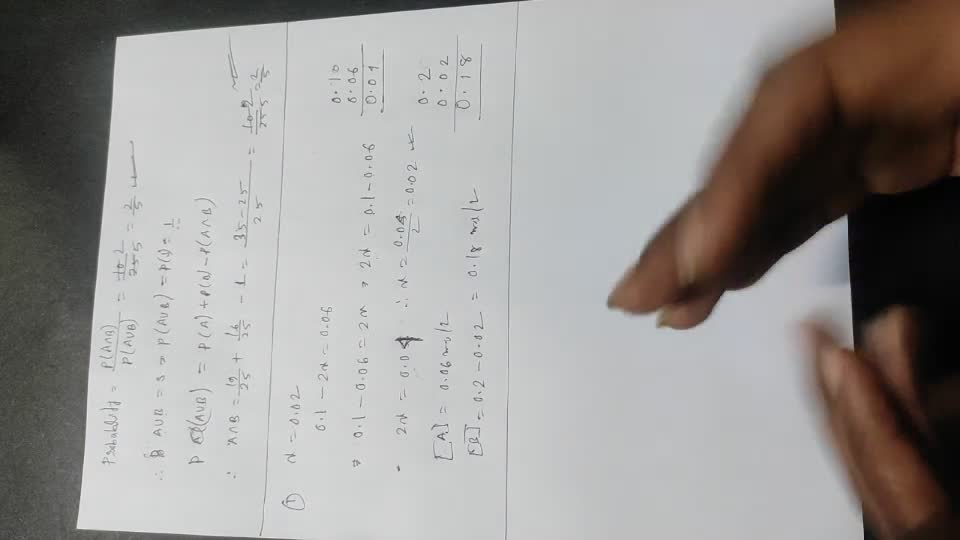 Probability = P(A∩B) / P(A∪B) = 10 2 / 25 5 = 2/5
∴ A∪B = S ⇒ P(A∪B) = P(S) = 1
P (A∪B) = P(A) + P(B) - P(A∩B)
∴ A∩B = 19/25 + 16/25 - 1 = 35-25 / 25 = 10 2 / 25 5 = 2/5
① x = 0.02
0.1 - 2x = 0.06
⇒ 0.1 - 0.06 = 2x ⇒ 2x = 0.1 - 0.06
2x = 0.04 ∴ x = 0.04/2 = 0.02
[A] = 0.06 ms/2
[B] = 0.2 - 0.02 = 0.18 ms/2
0.10
0.06
0.04
0.2
0.02
0.18